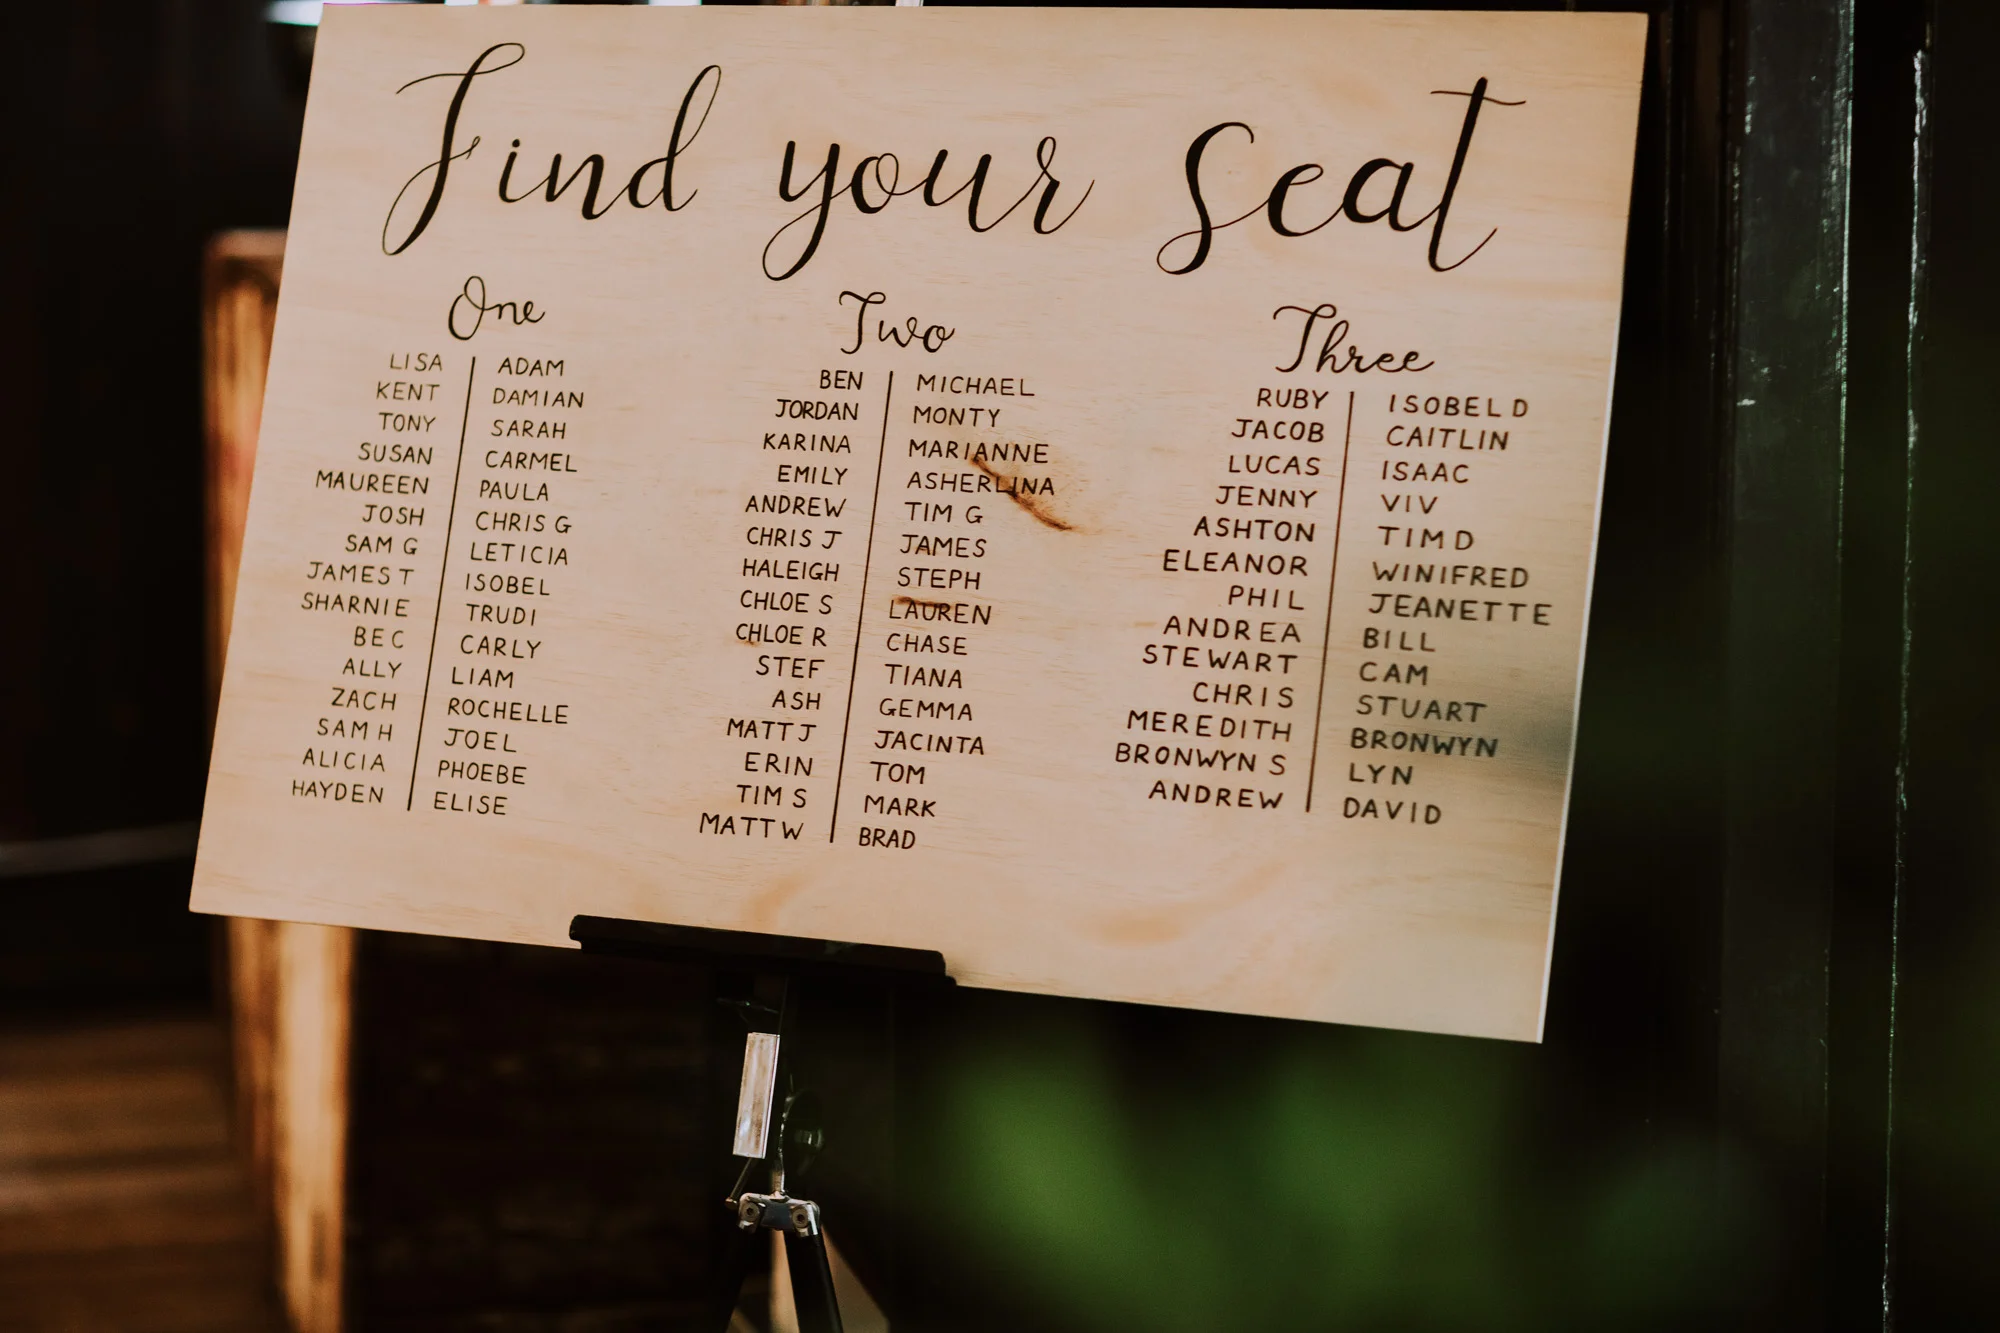 Find your Seat
One
LISA ADAM
KENT DAMIAN
TONY SARAH
SUSAN CARMEL
MAUREEN PAULA
JOSH CHRIS G
SAM G LETICIA
JAMES T ISOBEL
SHARNIE TRUDI
BEC CARLY
ALLY LIAM
ZACH ROCHELLE
SAM H JOEL
ALICIA PHOEBE
HAYDEN ELISE
Two
BEN MICHAEL
JORDAN MONTY
KARINA MARIANNE
EMILY ASHERLINA
ANDREW TIM G
CHRIS J JAMES
HALEIGH STEPH
CHLOE S LAUREN
CHLOE R CHASE
STEF TIANA
ASH GEMMA
MATT J JACINTA
ERIN TOM
TIM S MARK
MATT W BRAD
Three
RUBY ISOBEL D
JACOB CAITLIN
LUCAS ISAAC
JENNY VIV
ASHTON TIM D
ELEANOR WINIFRED
PHIL JEANETTE
ANDREA BILL
STEWART CAM
CHRIS STUART
MEREDITH BRONWYN
BRONWYN S LYN
ANDREW DAVID